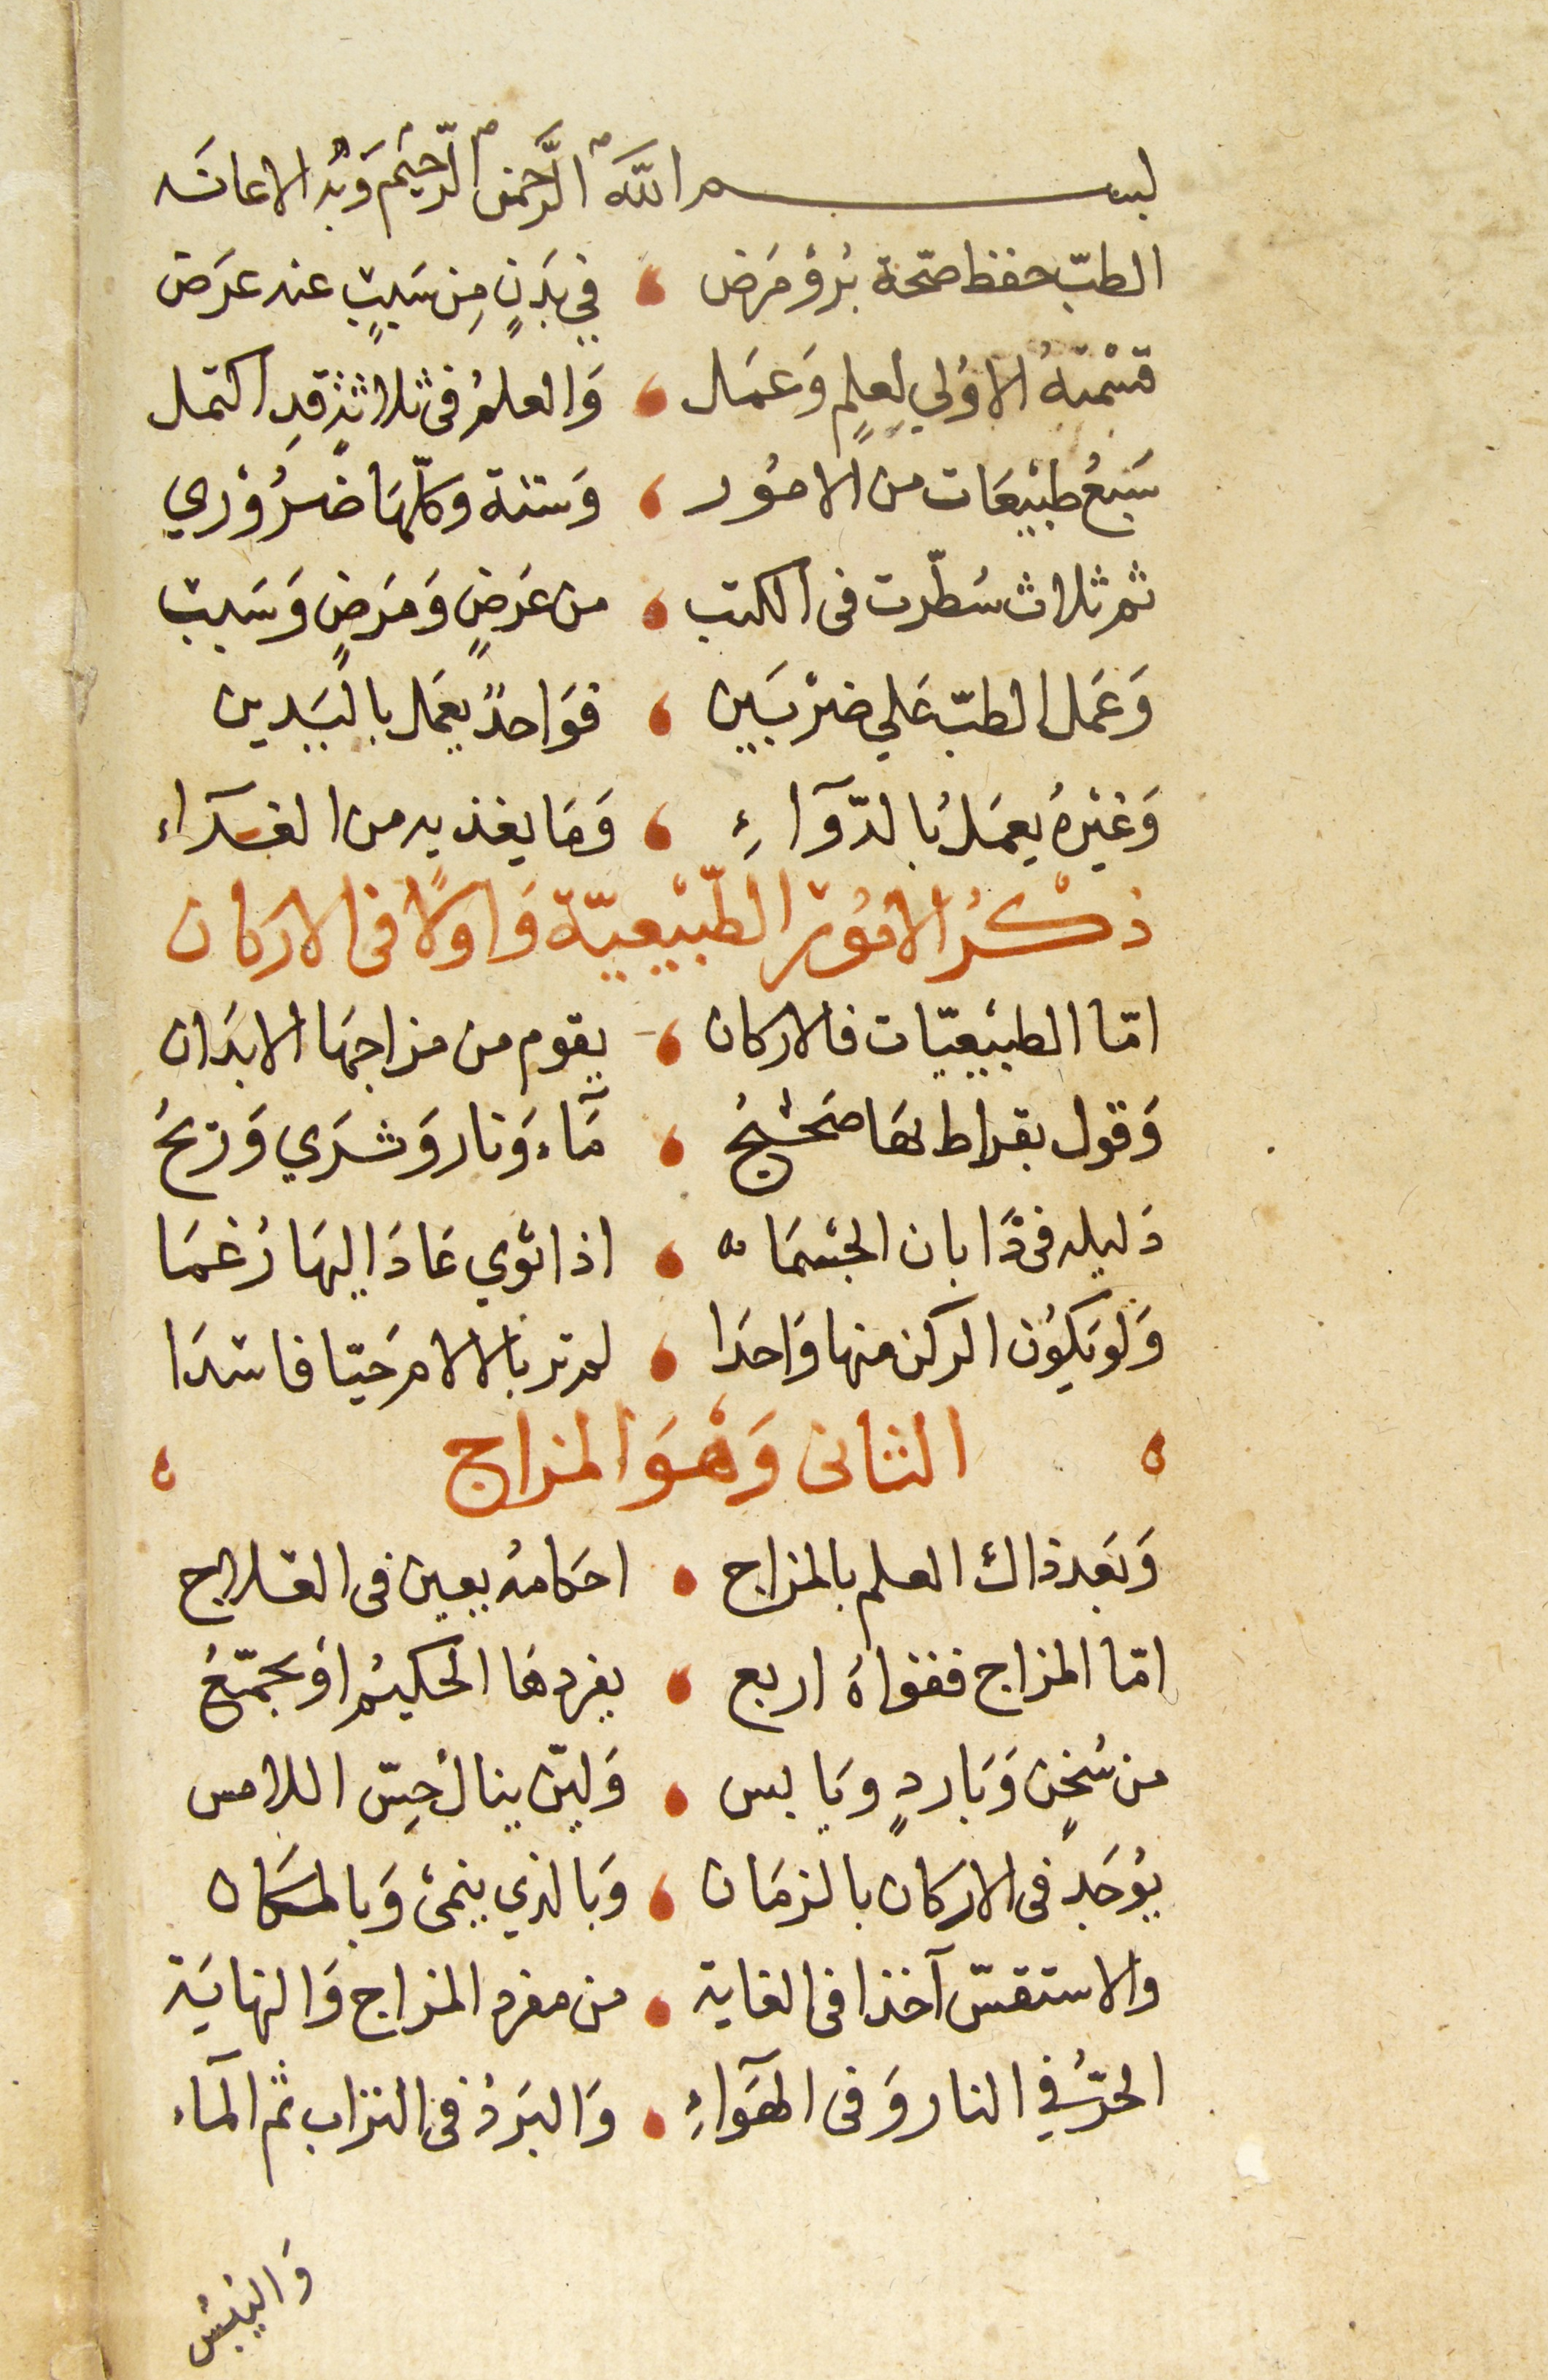 بسم الله الرَّحمن الرّحيْم وَبه الاعانَه
الطبّ حفظ صحّة بُرؤ مَرَض ، في بَدَنٍ مِن سَببٍ عنه عَرَض
قسْمَتهُ الاوُلي لِعلمٍ وَعمَل ، وَالعلمُ فى ثلاثةٍ قدِ اكتمل
سَبْعُ طبيْعَات من الامُور ، وَستة وكلّهَا ضرُوْري
ثم ثلاث سُطّرت فى الكتب ، من عَرَضٍ وَمَرَضٍ وَسَبب
وَعَمل الطبّ عَلي ضرْبَين ، فوَاحدٌ يعمَل باليَدين
وَغيْرهُ يعمَلُ بالدّوآءِ ، وَمَا يغذيه من الغذآء
ذكْرُ الامُوْر الطّبيْعيّة وَاولًا فى الاركان
امّا الطبيْعيّات فالاركان ، يقوم من مزاجهَا الابدَان
وَقول بقراط بهَا صَحيْحُ ، مَآء وَنار وَثرَي وَريحُ
دَليله فى ذَا بان الجسْمَا ، اذا ثوي عَادَ اليهَا رُغمَا
وَلو يَكوُن الركن منها وَاحدَا ، لم تر بالالام حَيّا فاسدَا
الثانى وَهْوَ المزاج
وَبَعد ذاك العلم بالمزاج ، احكامهُ يعين فى العلاج
امّا المزاج فقواهُ اربع ، يفردهَا الحكيْم اوْ يجمّعُ
من سُخنٍ وَبَاردٍ ويَابس ، وَليّن ينالُ حِسّ اللامس
يوُجَد فى الاركان بالزمَان ، وَبَالذي ينمىْ وَبالمكان
والاستقسّ آخذا فى الغاية ، من مفرد المزاج وَالنهايَة
الحرُّ في النار وَفى الهَوآءِ ، وَالبَردُ فى التراب ثم المآء
وَاليُبْسُ